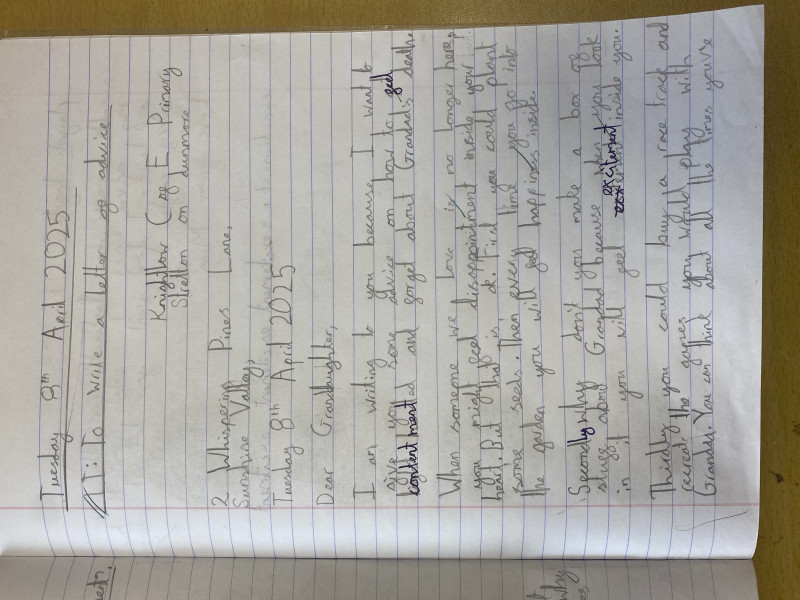 Tuesday 8th April 2025
LI: To write a letter of advice
Knightlow C of E Primary
Stretton on dunmore
2 Whispering Pines Lane,
Sunshine Valley,
Tuesday 8th April 2025
Dear Grandaughter,
I am writing to you because I want to
give you some advice on how to feel
contentment and forget about Grandad's death.
When someone we love is no longer here,
you might feel disappointment inside your
heart. But that is ok. First you could plant
some seeds. Then every time you go into
the garden you will feel happiness inside.
Secondly why don't you make a box of
stuff about Grandad because when you look
in it you will feel excitement inside you.
Thirdly you could buy a race track and
recreat the games you would play with
Grandad. You can think about all the times you've
why